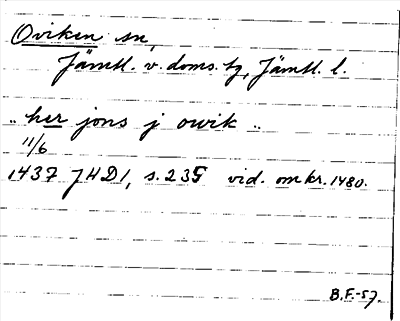 Oviken sn,
Jämtl. v. doms. tg, Jämtl. l.
.. her jons j owik ..
11/6
1437 JHD 1, s. 235 vid. omkr. 1480.
B.F.-57.